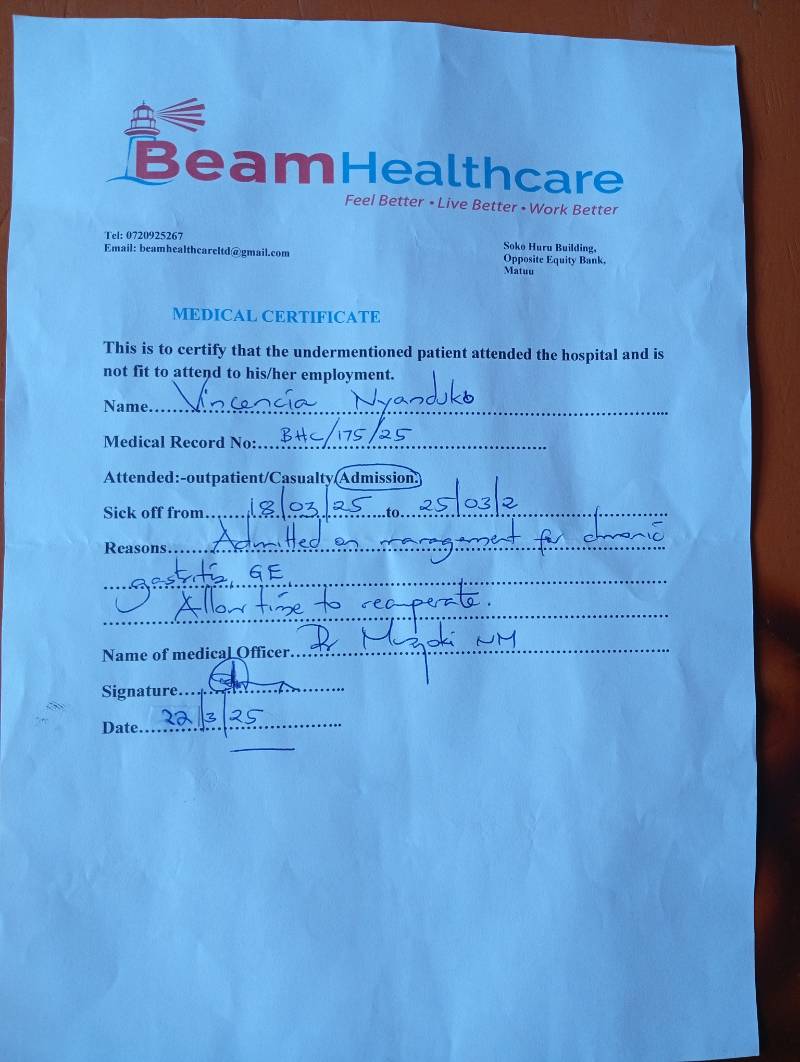 BeamHealthcare
Feel Better • Live Better • Work Better
Tel: 0720925267
Email: beamhealthcareltd@gmail.com
Soko Huru Building,
Opposite Equity Bank,
Matuu
MEDICAL CERTIFICATE
This is to certify that the undermentioned patient attended the hospital and is
not fit to attend to his/her employment.
Name......Vincencia Nyanduko
Medical Record No:....BHC/175/25
Attended:-outpatient/Casualty/Admission.
Sick off from........18/03/25...to...25/03/2
Reasons......Admitted on management for chronic
gastritis, GE,
Allow time to recuperate.
Name of medical Officer....Dr Muzoki NM
Signature....
Date....22/3/25